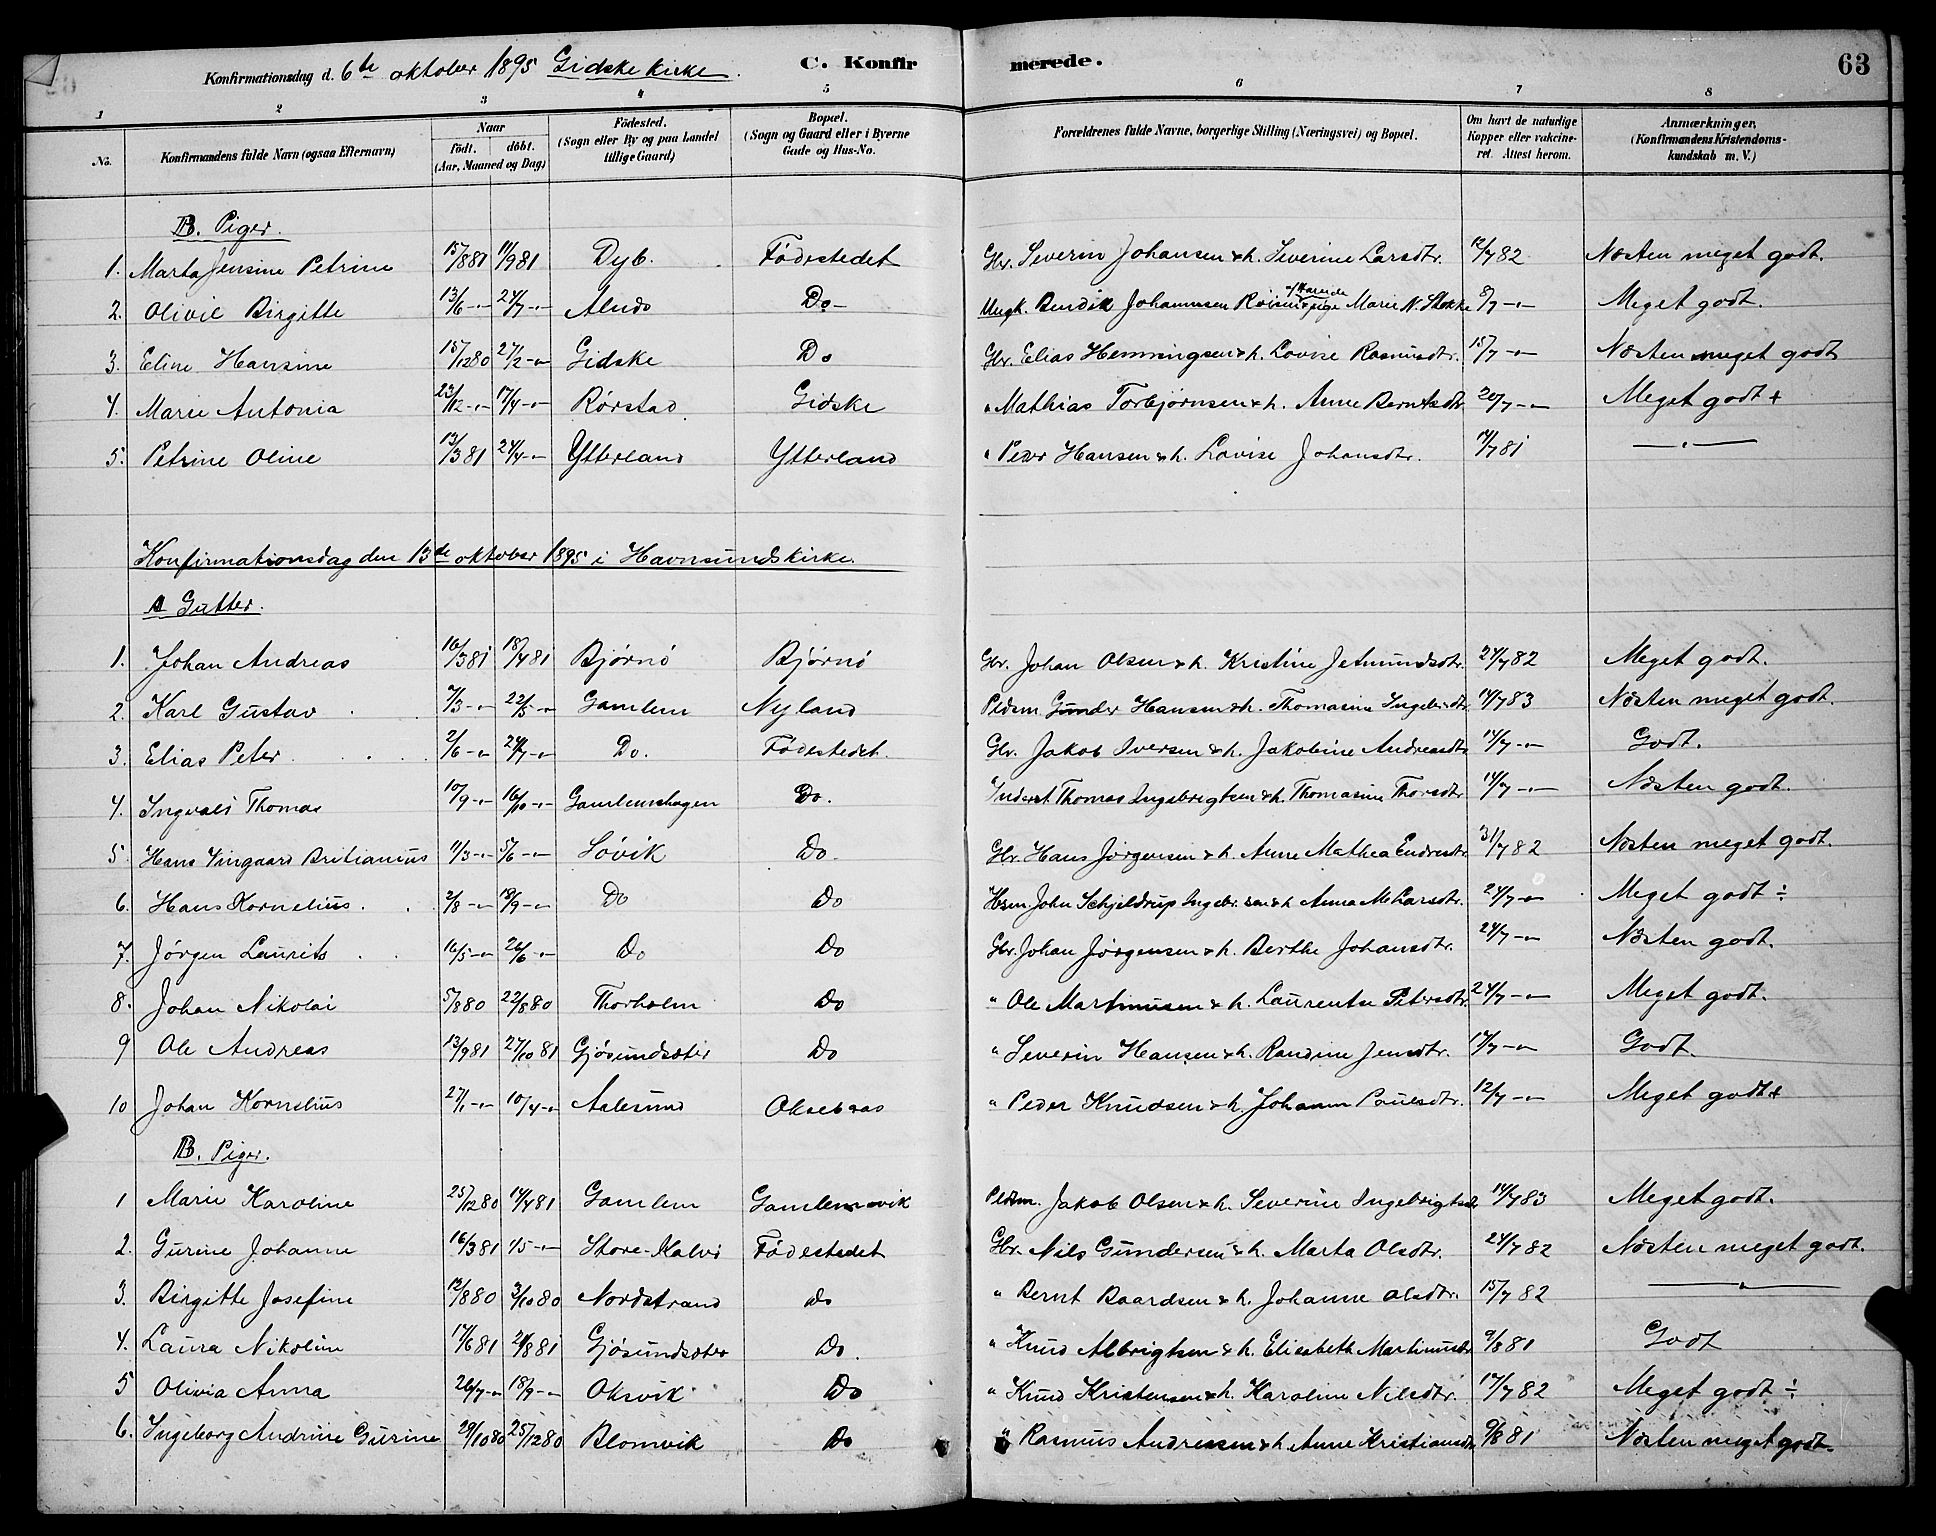 Konfirmationsdag d. 6te oktober 1895 Gidske kirke. C. Konfirmerede. 63
1 2 3 4 5 6 7 8
No. Konfirmandens fulde Navn (ogsaa Efternavn) Naar født. døbt. (Aar, Maaned og Dag) Fødested. (Sogn eller By og paa Landet tillige Gaard) Bopæl. (Sogn og Gaard eller i Byerne Gade og Hus-No. Forældrenes fulde Navne, borgerlige Stilling (Næringsvei) og Bopæl. Om havt de naturlige Kopper eller vakcineret. Attest herom. Anmærkninger, (Konfirmandens Kristendomskundskab m. V.)
B. Piger.
1. Marta Jensine Petrine 15/8 81 11/9 81 Dyb. Fødestedet Gbr. Severin Johansen & h. Severine Larsdtr. 12/7 82 Næsten meget godt.
2. Olivie Birgitte 13/6 -"- 24/7 -"- Alnes Do- Ungk. Bendik Johannesen & pige Marie N. Stokke 8/7 -"- Meget godt.
3. Eline Hansine 15/12 80 27/2 -"- Gidske Do Gbr. Elias Henningsen & h. Lovise Rasmusdtr. 15/7 -"- Næsten meget godt
4. Marie Antonia 23/12 -"- 17/4 -"- Rørstad. Gidske " Mathias Torbjørnsen & h. Anne Berntsdtr 20/7 -"- Meget godt +
5. Petrine Oline 13/3 81 24/4 -"- Ytterland Ytterland " Peder Hansen & h. Lovise Johansdtr. 14/7 81 —"—
Konfirmationsdag den 13de oktober 1895 i Havnsundskirke.
A Gutter.
1. Johan Andreas 16/3 81 18/4 81 Bjørnø Bjørnø Gbr. Johan Olsen & h. Kristine Jetmundsdtr. 24/7 82 Meget godt.
2. Karl Gustav 7/3 -"- 22/5 -"- Gamlem Nyland Pldsm Gunder Hansen & h. Thomasine Ingebrdtr. 14/7 83 Næsten meget godt.
3. Elias Peter 2/6 -"- 24/7 -"- Do. Fødestedet. Gbr. Jakob Iversen & h. Jakobine Andreasdtr 14/7 -"- Godt.
4. Ingvald Thomas 10/9 -"- 16/10 -"- Gamlemshagen Do. Inderst Thomas Ingebrigtsen & h. Thomasine Thorsdtr 14/7 -"- Næsten godt.
5. Hans Vingaard Britianius 11/3 -"- 5/6 -"- Løvik Do- Gbr. Hans Jørgensen & h. Anne Mathea Endresdtr 31/7 82 Næsten meget godt.
6. Hans Kornelius. 2/8 -"- 18/9 -"- Do Do Hsm. John Schjeldrup Ingebr.sen & h Anna M. Larsdtr. 24/7 -"- Meget godt ÷
7. Jørgen Laurits 16/5 -"- 26/6 -"- Do Do Gbr. Johan Jørgensen & h. Berthe Johansdtr. 24/7 -"- Næsten godt.
8. Johan Nikolai 5/8 80 22/8 80 Thorholm Do " Ole Martinusen & h. Laurentse Petersdtr. 24/7 -"- Meget godt.
9 Ole Andreas 13/9 81 27/10 81 Gjøsundsæter Do " Severin Hansen & h. Randine Jensdtr. 17/7 -"- Godt.
10 Johan Kornelius 27/1 -"- 10/4 -"- Aalesund Oksebaas " Peder Knudsen & h. Johanne Paulsdtr. 12/7 -"- Meget godt +
B. Piger.
1 Marie Karoline 25/12 80 14/4 81 Gamlem Gamlemsvik Pldsm. Jakob Olsen & h. Severine Ingebrigtsdtr 14/7 83 Meget godt.
2. Gurine Johanne 16/3 81 1/5 -"- Store-Kalvø Fødestedet Gbr. Nils Gundersen & h. Marta Olsdtr. 24/7 82 Næsten meget godt.
3. Birgitte Josefine 12/8 80 3/10 80 Nordstrand Do " Bernt Baardsen & h. Johanne Olsdtr. 15/7 82 —"—
4. Laura Nikoline 17/6 81 21/8 81 Gjøsundsæter Do. " Knud Albrigtsen & h. Elisabeth Martinusdtr 9/8 81 Godt
5 Olivia Anna 26/7 -"- 18/9 -"- Oksvik Do " Knud Kristensen & h. Karoline Nilsdtr. 17/7 82 Meget godt ÷
6. Ingeborg Andrine Gurine 29/10 80 25/12 80 Blomvik Do " Rasmus Andresen & h. Anne Kristiansdtr 9/8 81 Næsten meget godt.